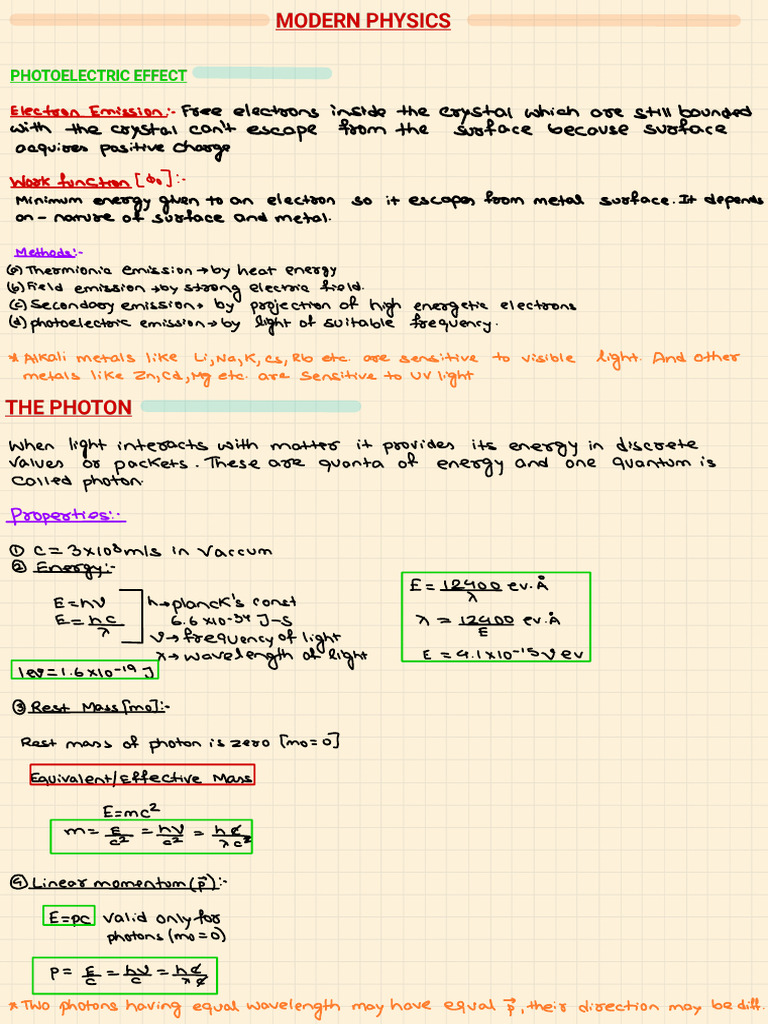 MODERN PHYSICS
PHOTOELECTRIC EFFECT
Electron Emission:- Free electrons inside the crystal which are still bounded
with the crystal can't escape from the surface because surface
acquires positive charge
Work function [Φ₀]:-
Minimum energy given to an electron so it escapes from metal surface. It depends
on - nature of surface and metal.
Methods:-
(a) Thermionic emission → by heat energy
(b) Field emission → by strong electric field.
(c) Secondary emission → by projection of high energetic electrons
(d) photoelectric emission → by light of suitable frequency.
* Alkali metals like Li, Na, K, Cs, Rb etc. are sensitive to visible light. And other
metals like Zn, Cd, Mg etc. are sensitive to UV light
THE PHOTON
When light interacts with matter it provides its energy in discrete
values or packets. These are quanta of energy and one quantum is
called photon.
Properties:-
① c = 3×10⁸ m/s in vaccum
② Energy:-
E = hν
E = hc/λ
h → planck's const
6.6×10⁻³⁴ J-s
ν → frequency of light
λ → wavelength of light
1ev = 1.6×10⁻¹⁹ J
E = 12400/λ ev.Å
λ = 12400/E ev.Å
E = 4.1×10⁻¹⁵ ν ev
③ Rest Mass [m0]:-
Rest mass of photon is zero [m0 = 0]
Equivalent/Effective Mass
E = mc²
m = E/c² = hν/c² = hc/λc²
④ Linear momentum (p⃗):-
E = pc valid only for
photons (m0 = 0)
p = E/c = hν/c = hc/λc
* Two photons having equal wavelength may have equal p⃗, their direction may be diff.